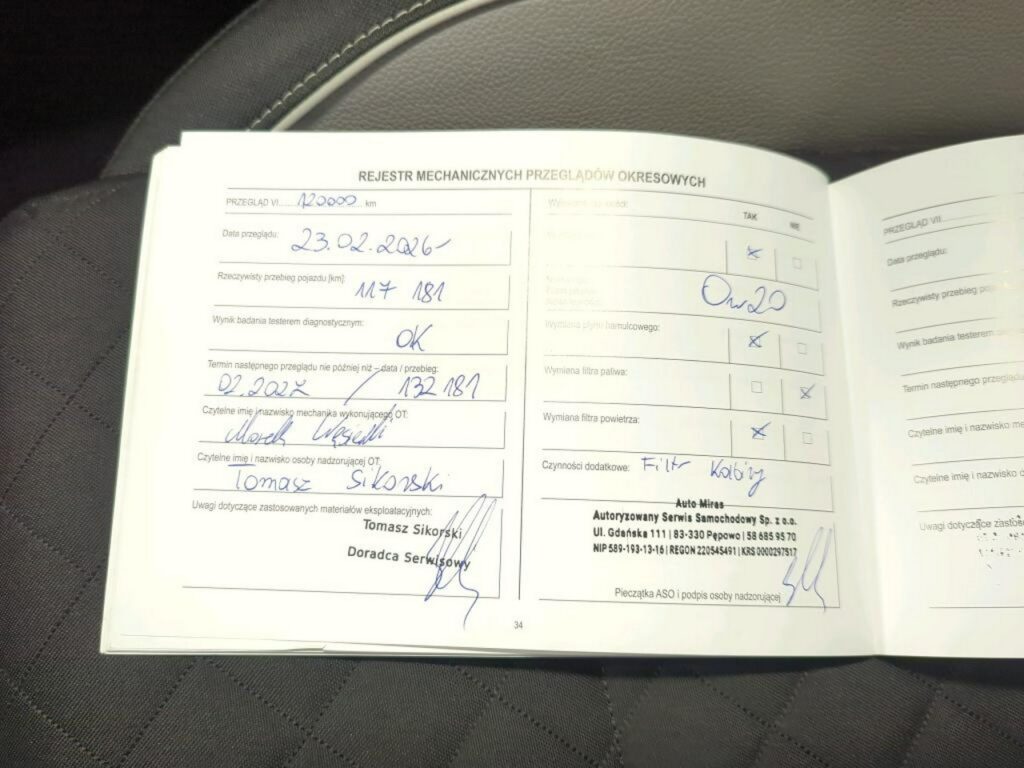 REJESTR MECHANICZNYCH PRZEGLĄDÓW OKRESOWYCH
PRZEGLĄD VI 120000 km
Data przeglądu: 23.02.2026
Rzeczywisty przebieg pojazdu [km]:
117 181
Wynik badania testerem diagnostycznym:
OK
Termin następnego przeglądu nie później niż – data / przebieg:
02.2027 / 132 181
Czytelne imię i nazwisko mechanika wykonującego OT:
Marek
Czytelne imię i nazwisko osoby nadzorującej OT:
Tomasz Sikorski
Uwagi dotyczące zastosowanych materiałów eksploatacyjnych:
Tomasz Sikorski
Doradca Serwisowy
TAK NIE
0w20
Wymiana płynu hamulcowego:
Wymiana filtra paliwa:
Wymiana filtra powietrza:
Czynności dodatkowe: Filtr Kabiny
Auto Miras
Autoryzowany Serwis Samochodowy Sp. z o.o.
Ul. Gdańska 111 | 83-330 Pępowo | 58 685 95 70
NIP 589-193-13-16 | REGON 220545491 | KRS 0000297517
Pieczątka ASO i podpis osoby nadzorującej
34
PRZEGLĄD VII
Data przeglądu:
Rzeczywisty przebieg
Wynik badania testerem
Termin następnego przeglądu
Czytelne imię i nazwisko
Czytelne imię i nazwisko
Uwagi dotyczące